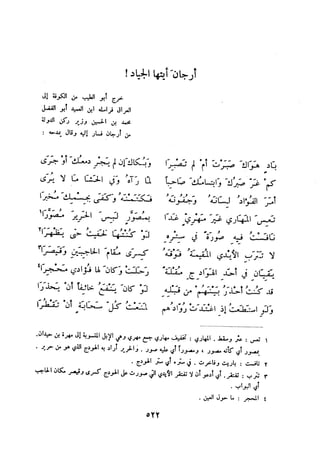 أرجان أيتها الجياد !
خرج أبو الطيب من الكوفة إلى
العراق فراسله ابن العميد أبو الفضل
محمد بن الحسين وزير ركن الدولة
من أرجان فسار إليه وقال يمدحه :
بادٍ هواكَ صبرتَ أم لم تصبرا وبكاكَ إن لم يجرِ دمعُكَ أو جرى
كم غرّ صبرُكَ وابتسامُكَ صاحباً لما رآه وفي الحشا ما لا يُرى
أمرَ الفؤادُ لسانَهُ وجفونَهُ فكتمنَهُ وكفى بجسمِكَ مخبرا
تعسَ المهاري غيرَ مهريٍّ غدا بمصوّرٍ لبسَ الحريرَ مصوّرا ١
نافستُ فيه صورةً في سترِهِ لو كنتُها لخفيتُ حتى يظهرا ٢
لا تتربِ الأيدي المقيمةُ فوقَهُ كسرى مقامَ الحاجبينِ وقيصرا ٣
يقيانِ في أحدِ الهوادجِ مقلةً رحلتْ وكانَ لها فؤادي محجرا ٤
قد كنتُ أحذرُ بينَهم من قبلِهِ لو كانَ ينفعُ خائفاً أن يحذرا
ولو استطعتُ إذِ اغتدتْ روّادُهم لمنعتُ كلَّ سحابةٍ أن تقطرا
١ تعس : عثر وسقط . المهاري : تخفيف مهاري جمع مهري وهي الإبل المنسوبة إلى مهرة بن حيدان .
بمصور أي كأنه مصور ، ومصوراً أي عليه صور . والحرير أراد به الهودج الذي هو من حرير .
٢ نافست : باريت وفاخرت . في ستره أي ستر الهودج .
٣ تترب : تفتقر . أي أدعو أن لا تفتقر الأيدي التي صورت على الهودج كسرى وقيصر مكان الحاجب
أي البواب .
٤ المحجر : ما حول العين .
٥٢٢